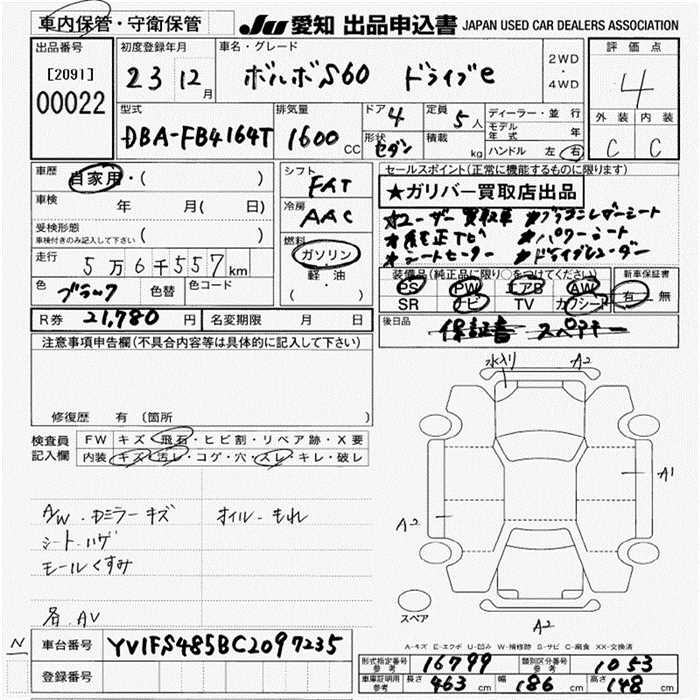 車内保管・守衛保管
JU 愛知 出品申込書 JAPAN USED CAR DEALERS ASSOCIATION
出品番号
[2091]
00022
初度登録年月
23 12月
車名・グレード
ボルボS60 ドライブe
2WD
・
4WD
評価点
4
外装 内装
C C
型式
DBA-FB4164T
排気量
1600 CC
ドア 4
形状 セダン
定員 5人
積載 kg
ディーラー・並行
モデル年式 年
ハンドル 左 右
車歴
自家用・( )
車検
年 月( 日)
受検形態
車検付きのみ記入して下さい ( )
走行
5万6千557km
色 ブラック 色替 色コード
R券 21,780円 名変期限 月 日
シフト
FAT
冷房
AAC
燃料
ガソリン
軽・油
( )
セールスポイント(正常に機能するものに限ります)
★ガリバー買取店出品
*ユーザー買取車 *ブラウンレザーシート
*純正ナビ *パワーシート
*シートヒーター *ドライブレコーダー
装備品(純正品に限り○をつけてください) 新車保証書
PS PW エアB AW 有・無
SR ナビ TV カワシート
後日品
保証書 スペアキー
注意事項申告欄(不具合内容等は具体的に記入して下さい)
修復歴 有 〔箇所
検査員記入欄
FW キズ・飛石・ヒビ割・リペア跡・X要
内装 キズ・汚レ・コゲ・穴・スレ・キレ・破レ
A/W・ドミラーキズ オイル・もれ
シート・ハゲ
モールくすみ
各AV
水入り A2
A1
A2
スペア
A2
A-キズ E-エクボ U-凹み W-補修跡 S-サビ C-腐食 XX-交換済
N
車台番号 YV1FS485BC2097235
登録番号
形式指定番号 参考 16799 類別区分番号 参考 1053
車庫証明用 参考 長さ 463cm 幅 186cm 高さ 148cm